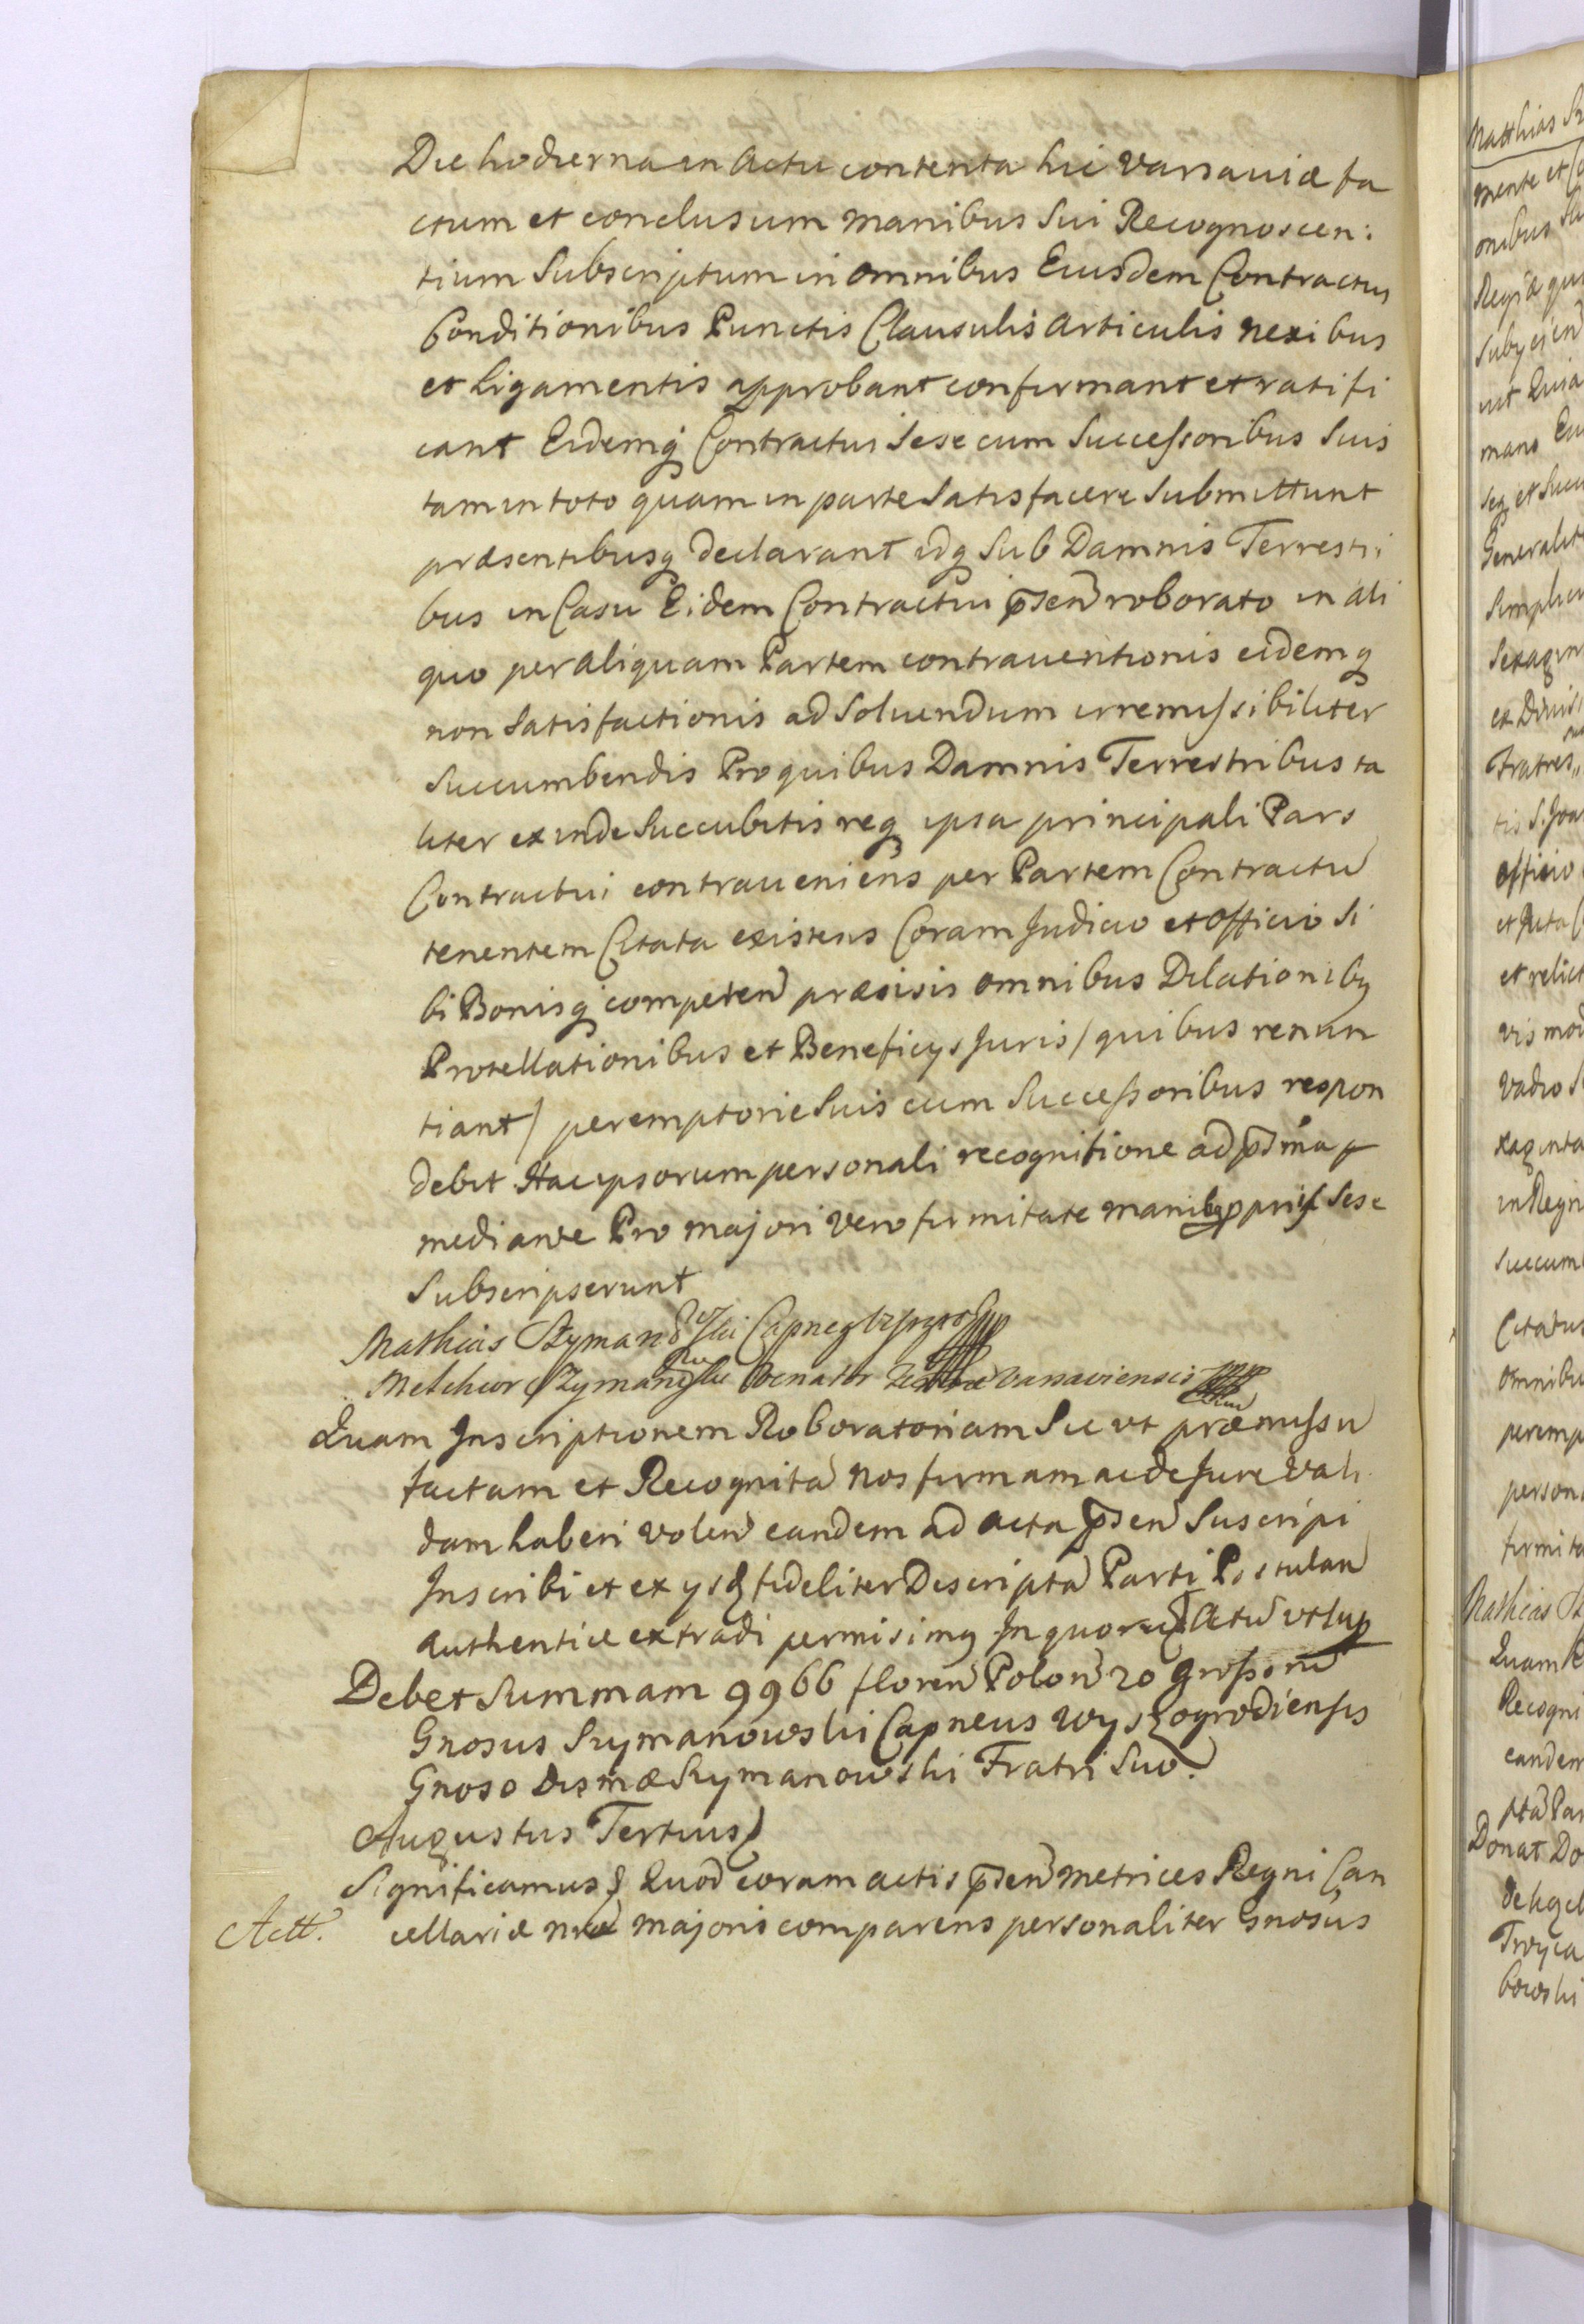 Die hodierna in Actu contenta hic Varsauiæ fa
ctum et conclusum manibus Sui Recognoscen:
tium Subscriptum in omnibus Eiusdem Contractus
Conditionibus Punctis Clausulis Articulis nexibus
et Ligamentis approbant confirmant et ratifi
cant Eidemq Contractui Sese cum Successoribus Suis
tam in toto quam in parte Satisfacere Submittunt
præsentibusq declarant idq Sub Damnis Terrestri
bus in Casu Eidem Contractui psen roborato in ali
quo per aliquam Partem contrauentionis eidemq
non Satisfactionis ad Soluendum irremissibiliter
Succumbendis Pro quibus Damnis Terrestribus ta
liter exinde Succubitis req ipsa principali Pars
Contractui contraueniens per Partem Contractu
tenentem Citata existens Coram Judicio et Officio Si
bi Bonisq competen præsisis omnibus Dilationibq
Protellationibus et Beneficys Juris / quibus renun
tiant / peremptorie Suis cum Successoribus respon
debit Hac ipsorum personali recognitione ad psma
mediante Pro majori vero firmitate manibq pprijs Sese
Subscripserunt
Mathias Szymanowski
Melchior Szymanowski Venator Varsaviensis
Quam Inscriptionem Roboratoriam Sic ut præmissu
factam et Recognita nos firmam ac de Jure Vali
dam haberi volen eandem ad acta psen Suscripi
Inscribi et ex ysd fideliter Descripta Parti Postulan
authentice extradi permisimq In quoru Actu ut sup
Debet Summam 9966 floren Polon 20 Grossoru
Gnosus Szymanowski Capneus Wyszogrodiensis
Gnoso Dismæ Szymanowski Fratri Suo.
Augustus Tertius
Significamus Quod coram actis psen metrices Regni Can
Actt. cellariæ nræ majoris comparens personaliter Gnosus
Matthias
mente et
onibus
Regiæ
ut
mano
seq et Succ
Generalit
Simplici
Sexagin
ex Diuisi
Fratres
tis S. Joa
officio
et Juta
et relict
vis mod
vadio
xaginta
in Regn
Succum
Citatus
omnibu
peremp
person
firmita
Mathias
Quam
Recogni
eandem
pta Par
Donat Do
Troyca
bowski